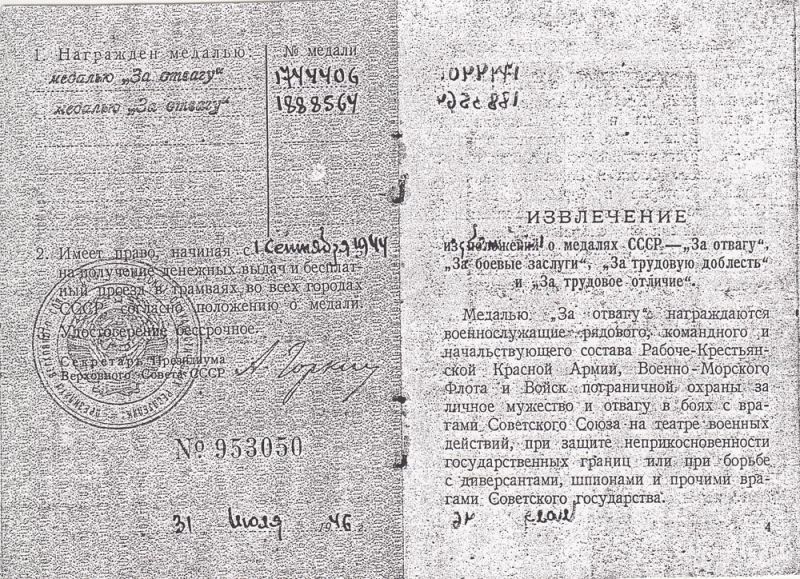 1. Награжден медалью:
№ медали
медалью „За отвагу“
1744406
медалью „За отвагу“
1888564
2. Имеет право, начиная с 1 Сентября 1944
на получение денежных выдач и бесплат-
ный проезд в трамваях во всех городах
СССР согласно положению о медали.
Удостоверение бессрочное.
Секретарь Президиума
Верховного Совета СССР
А. Горкин
№ 953050
31 Июля 46
ИЗВЛЕЧЕНИЕ
из положений о медалях СССР—„За отвагу“,
„За боевые заслуги“, „За трудовую доблесть“
и „За трудовое отличие“.
Медалью „За отвагу“ награждаются
военнослужащие рядового, командного и
начальствующего состава Рабоче-Крестьян-
ской Красной Армии, Военно-Морского
Флота и Войск пограничной охраны за
личное мужество и отвагу в боях с вра-
гами Советского Союза на театре военных
действий, при защите неприкосновенности
государственных границ или при борьбе
с диверсантами, шпионами и прочими вра-
гами Советского государства.
4